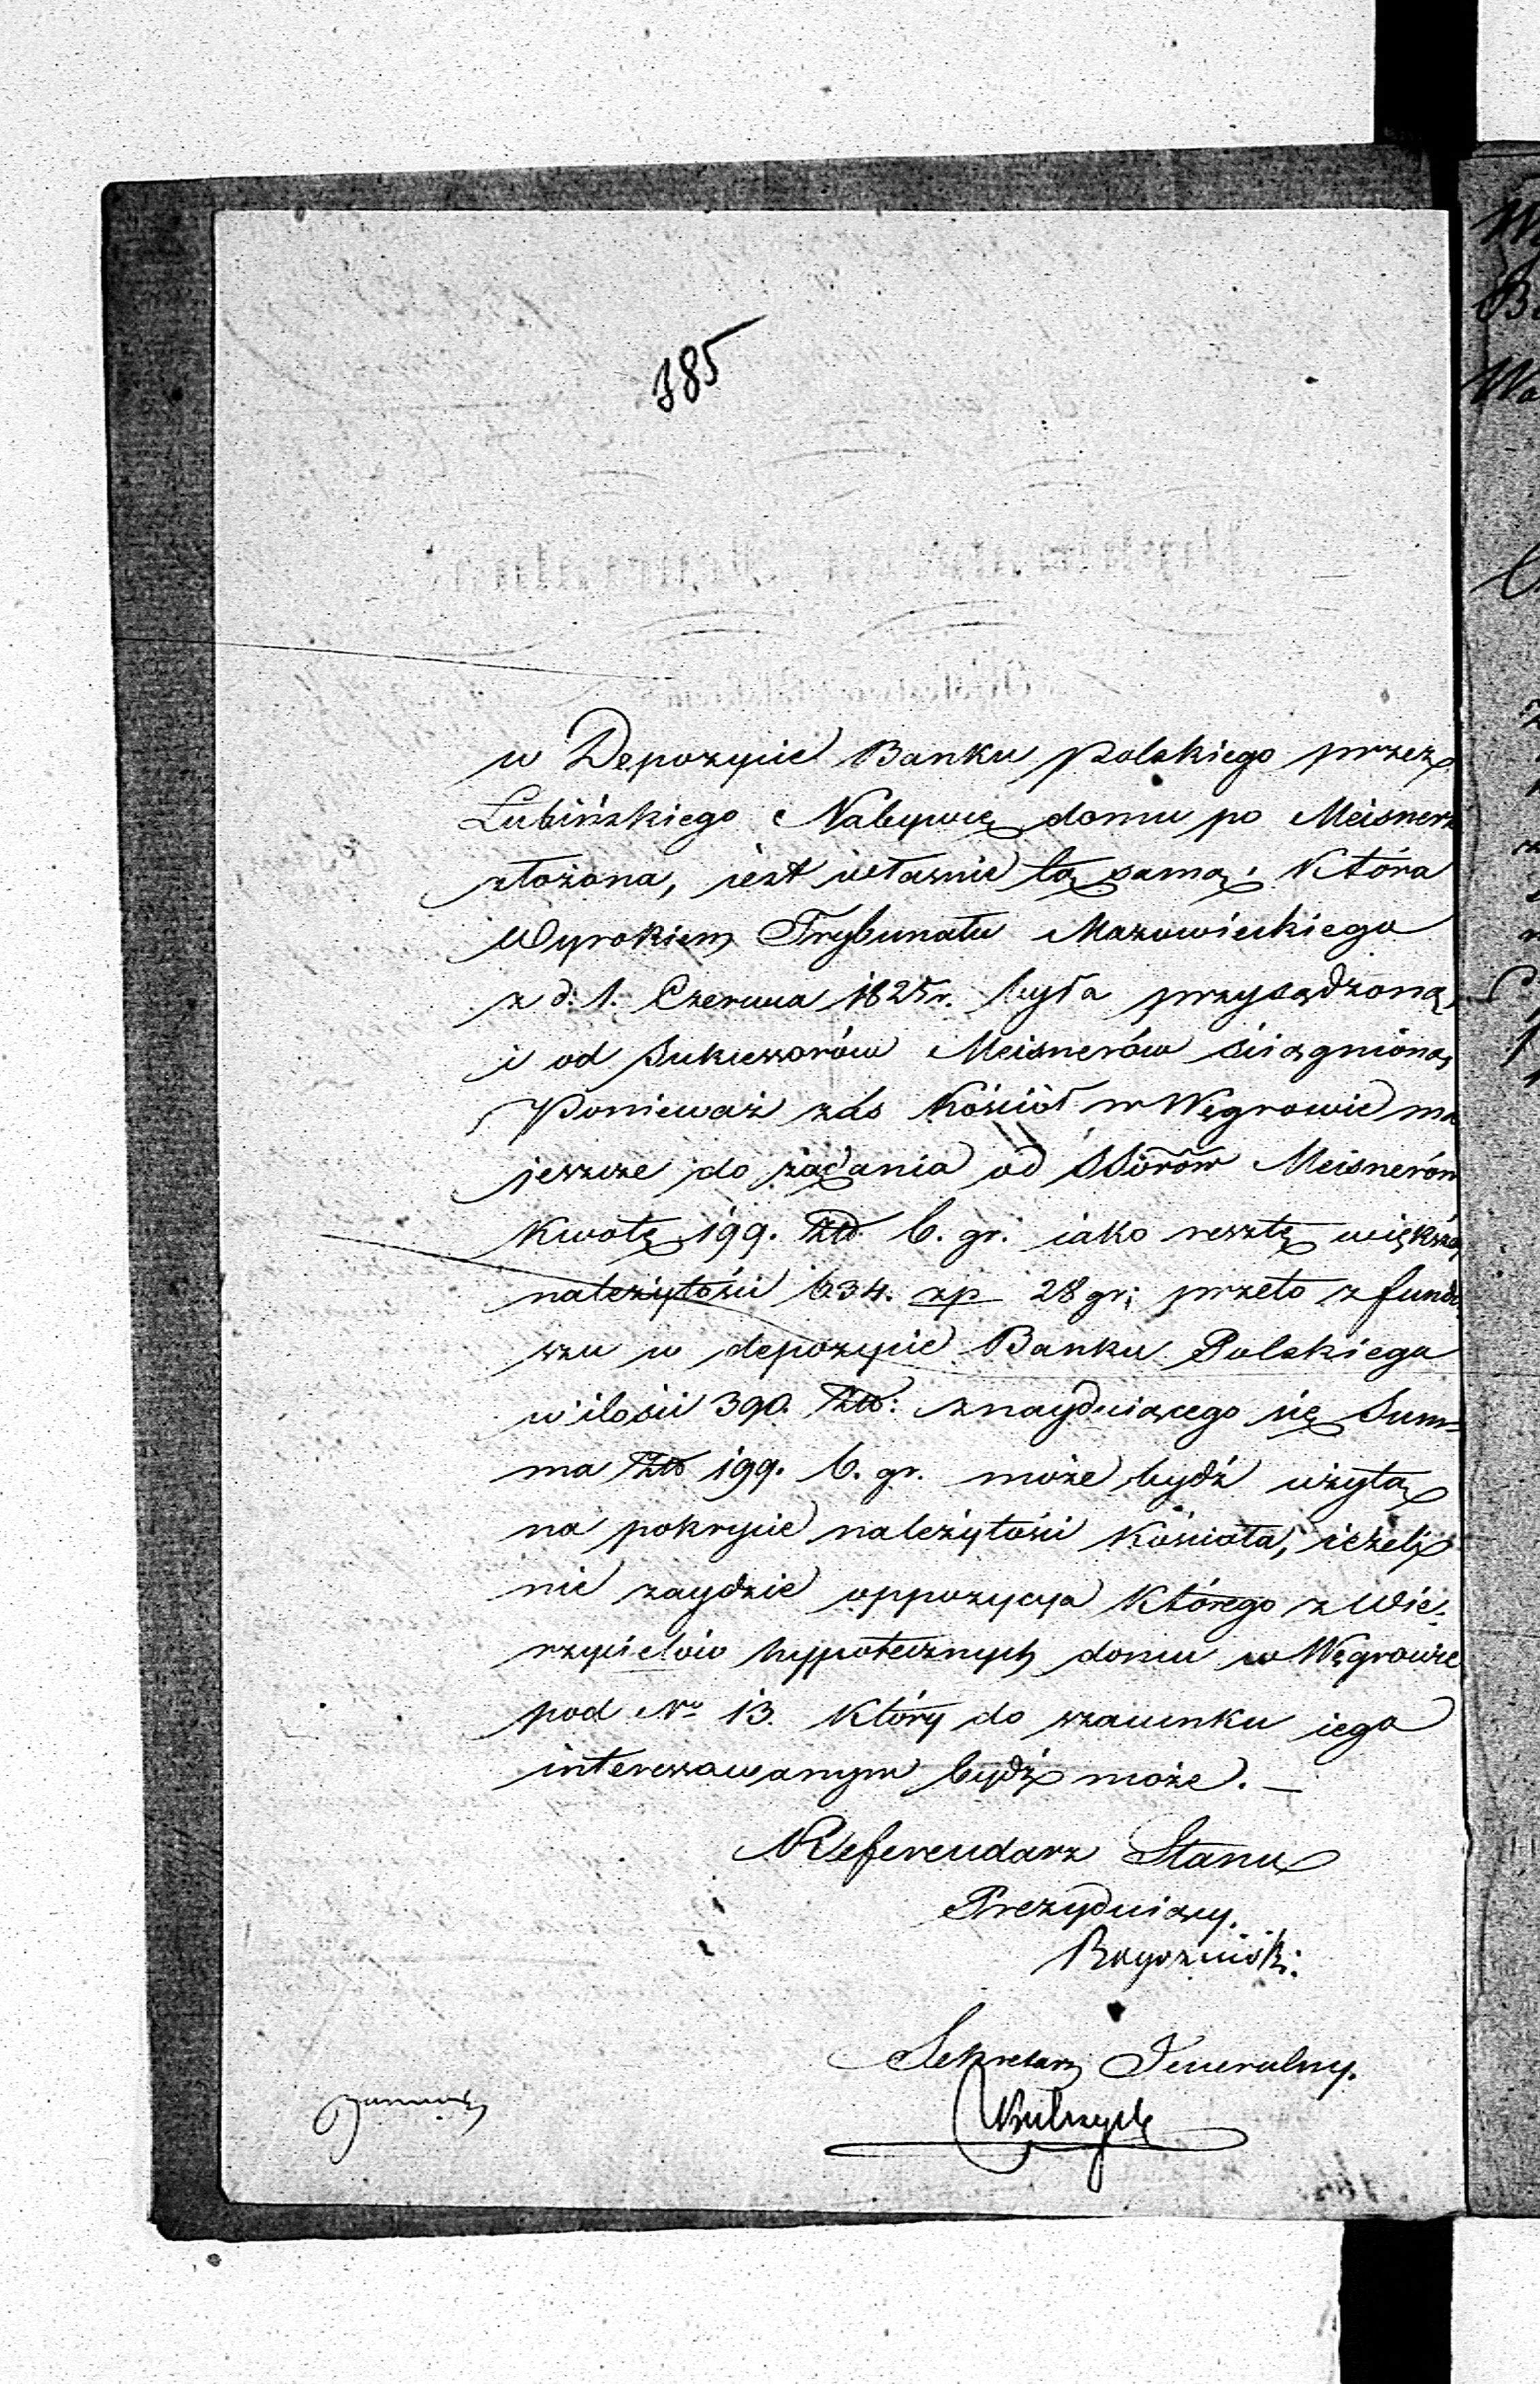 385
w Depozycie Banku Polskiego przez
Lubińskiego Nabywcę domu po Meisnerz
złożona, iest własnie tą samą; która
Wyrokiem Trybunału Mazowieckiego
z d. 1. Czerwca 1825 r. była przysądzoną,
i od Sukcessorów Meisnerów ściągnioną,
Ponieważ zaś Kościół w Węgrowie ma
jeszcze do żądania od SSorów Meisnerów
kwotę 199. Złtt. 6. gr. iako resztę większey
należytości 634. zp 28 gr; przeto z fundu
szu w depozycie Banku Polskiego
w ilości 390. Złtt: znayduiącego się Sum=
ma Złtt 199. 6. gr. może bydź użytą
na pokrycie należytości Kościoła, ieżeli
nie zaydzie oppozycya którego z Wie=
rzycielów hyppotecznych domu w Węgrowie
pod No 13. który do szacunku iego
interessowanym bydź może. —
Referendarz Stanu
Prezyduiący.
Sekretarz Jeneralny.